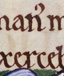 man̄ m
exerceb